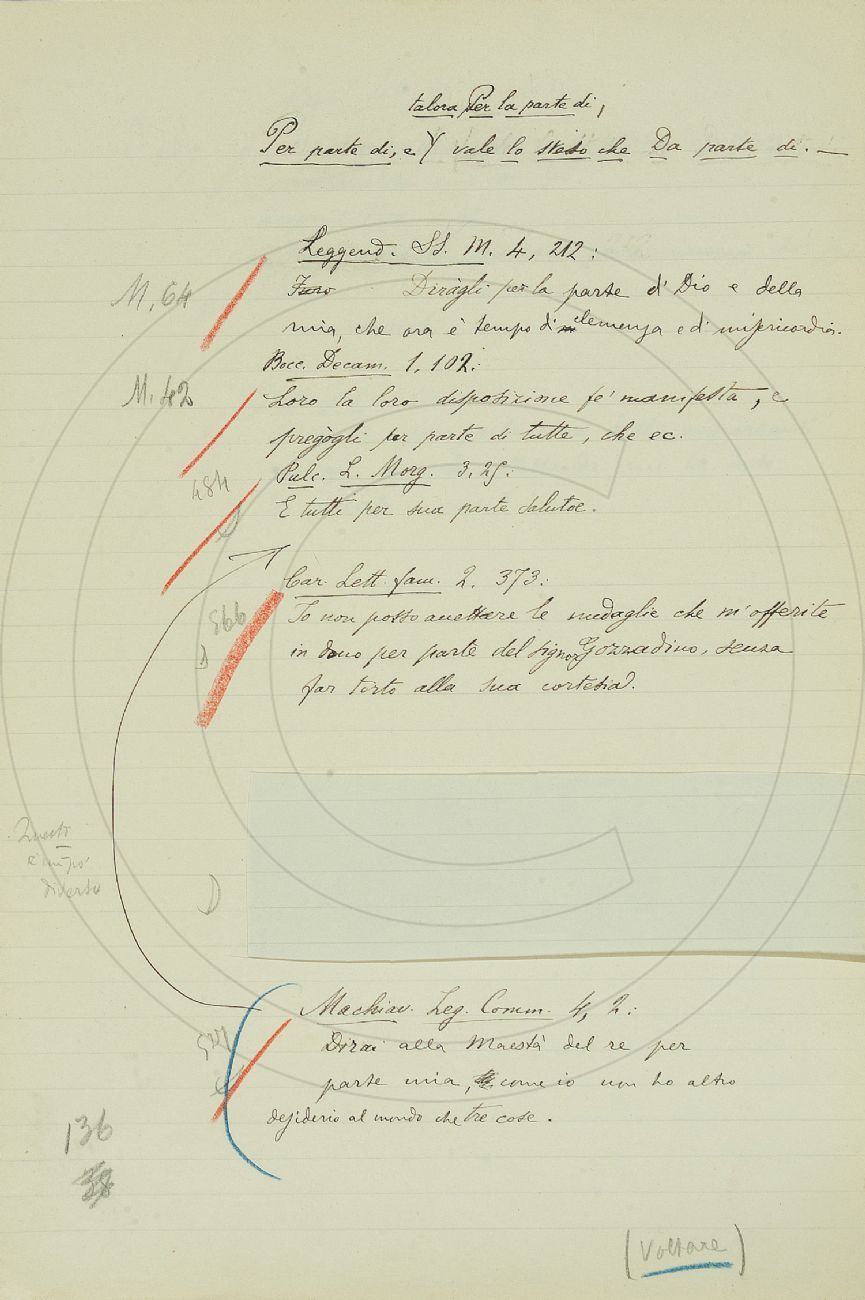 talora Per la parte di,
Per parte di, e vale lo stesso che Da parte di. —
Leggend. SS. M. 4, 212:
M. 64
Diràgli per la parte d' Dio e della
mia, che ora è tempo di clemenza e di misericordia.
Bocc. Decam. 1, 102:
M. 42
Loro la loro disposizione fe' manifesta, e
pregògli per parte di tutte, che ec.
Pulc. L. Morg. 3, 25:
484
E tutti per sua parte salutoe.
Car. Lett. fam. 2. 373:
566
Io non posso accettare le medaglie che m' offerite
in dono per parte del signor Gozzadino, senza
far torto alla sua cortesia.
diverso
Machiav. Leg. Comm. 4, 2:
Dirai alla Maestà del re per
parte mia, come io non ho altro
desiderio al mondo che tre cose.
136
38
(Voltare)